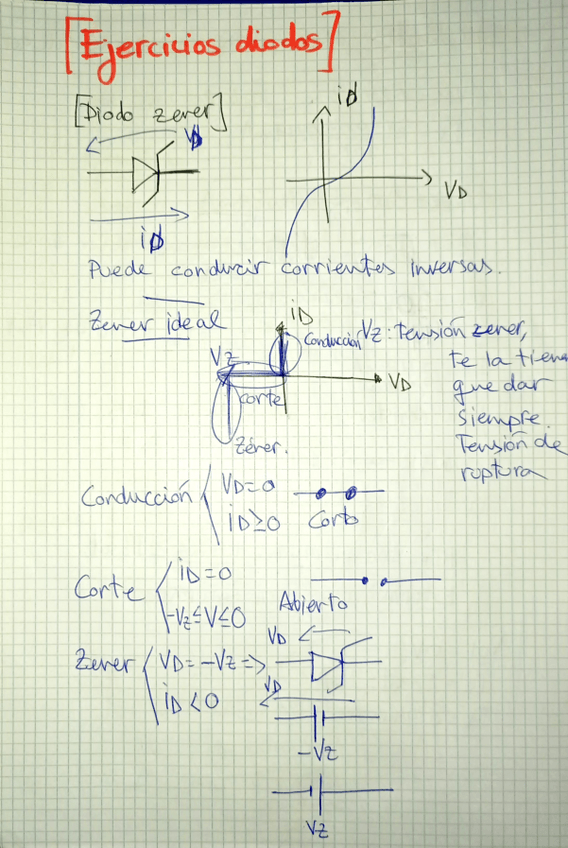 [Ejercicios diodos]
[Diodo zener]
VD
iD
iD
VD
Puede conducir corrientes inversas.
Zener ideal
iD
Conducción
VZ: Tensión zener,
te la tienen
que dar
siempre.
Tensión de
ruptura
VZ
VD
corte
zéner.
Conducción { VD=0
iD≥0
Corto
Corte { iD=0
-VZ≤V≤0
Abierto
Zener { VD=-VZ =>
iD<0
VD
VD
-VZ
VZ